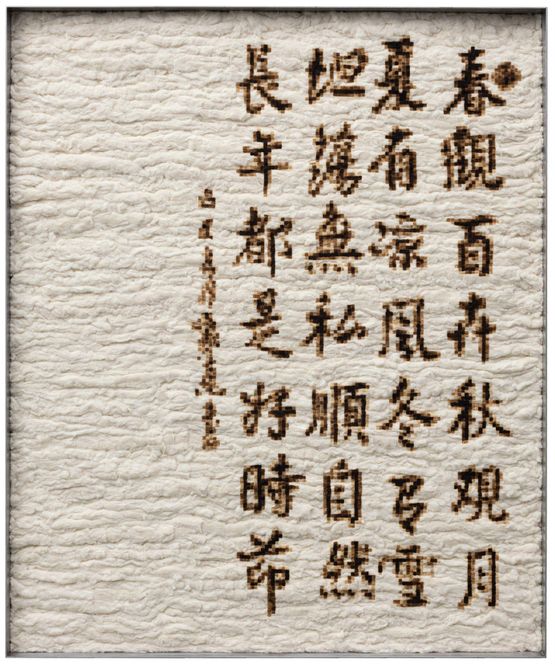 春觀百卉秋覌月
夏有凉風冬雪
坦蕩無私順自然
長年都是好時節